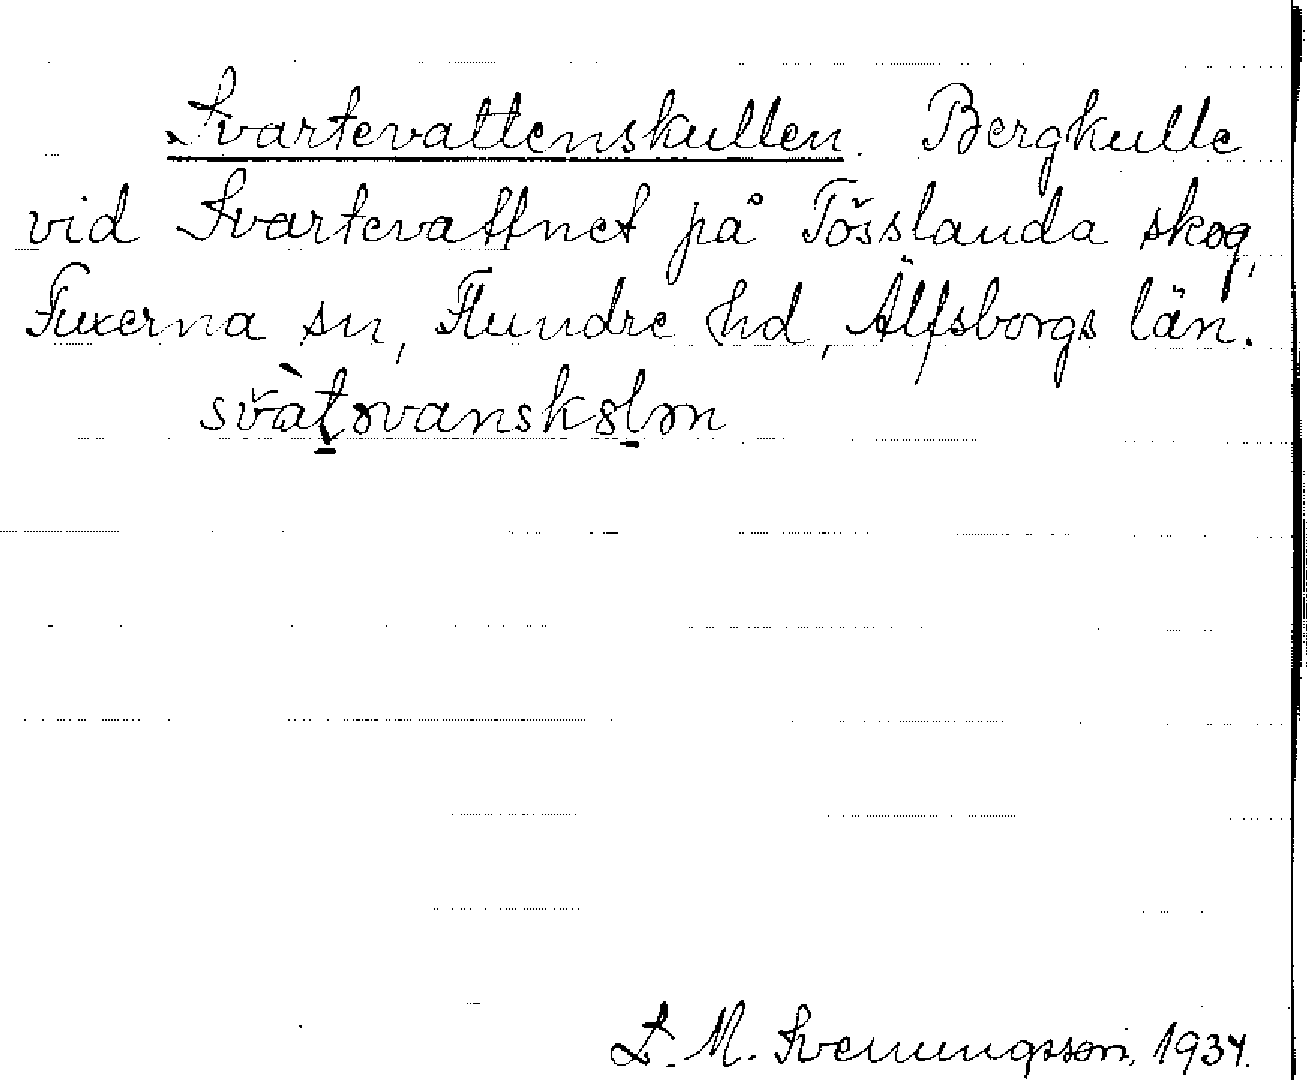 Svartevattenskullen. Bergkulle
vid Svartevattnet på Tösslanda skog,
Fuxerna sn, Flundre hd, Älfsborgs län.
L. M. Svenungsson, 1934.